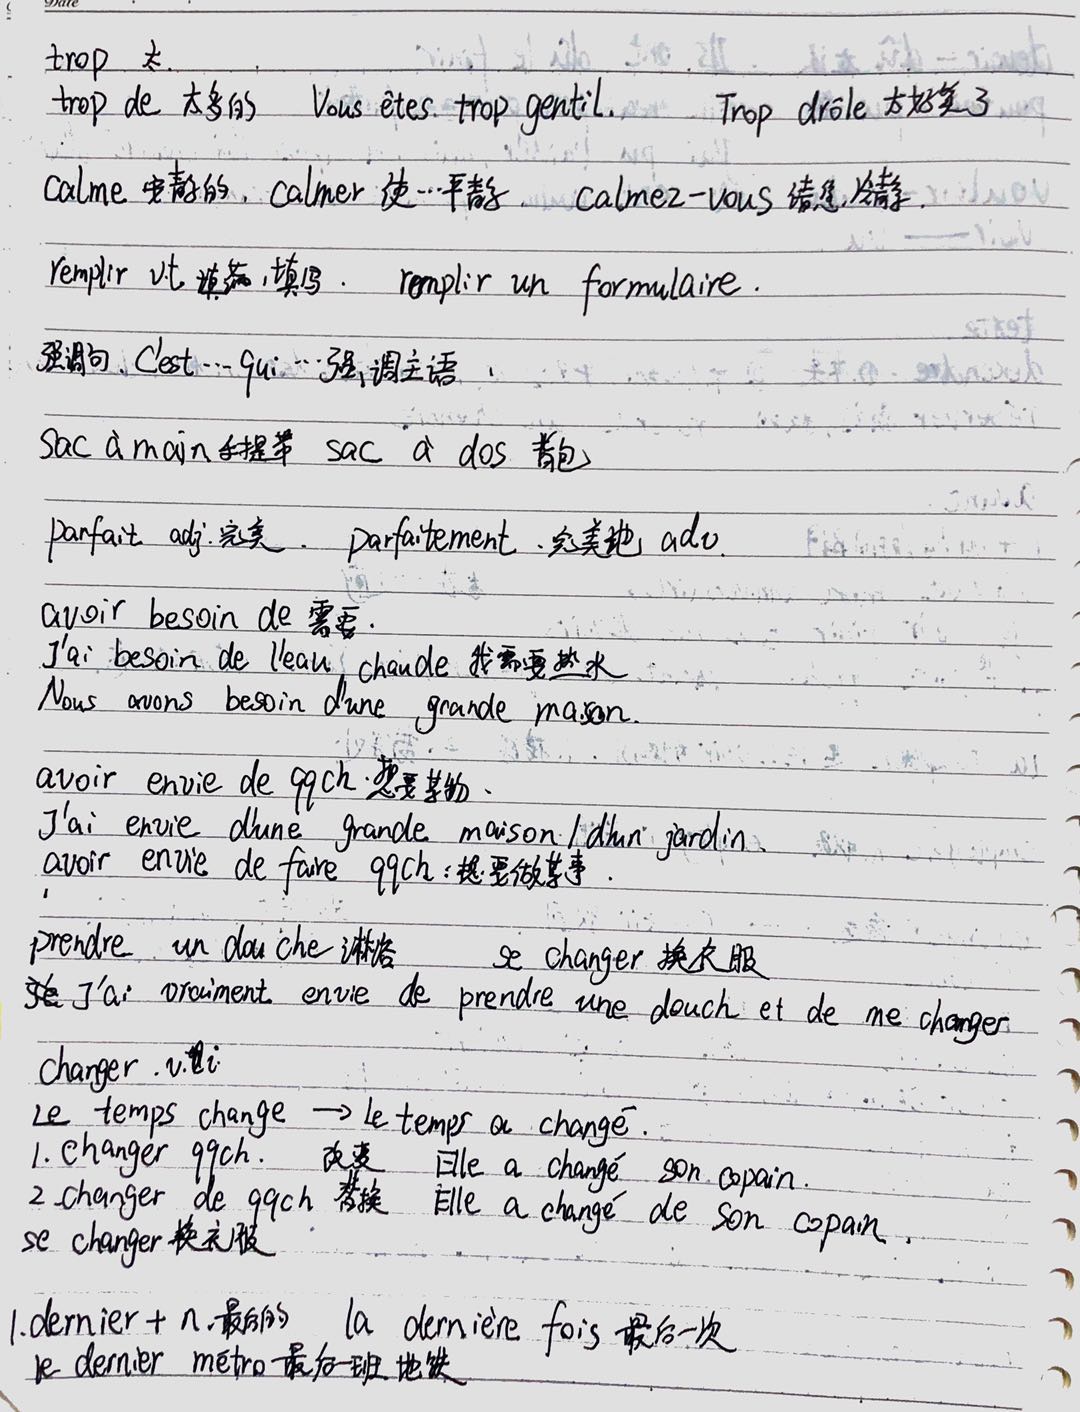 Date
trop 太.
trop de 太多的 Vous êtes. trop gentil. Trop drôle 太好笑了
calme 安静的, calmer 使…平静. calmez-vous 请您冷静.
remplir v.t. 填满,填写. remplir un formulaire.
强调句. C'est … qui … 强调主语
Sac à main 手提带 sac à dos 背包
parfait adj. 完美. parfaitement. 完美地 adv.
avoir besoin de 需要.
J'ai besoin de l'eau chaude 我需要热水
Nous avons besoin d'une grande maison.
avoir envie de qqch. 想要某物.
J'ai envie d'une grande maison / d'un jardin.
avoir envie de faire qqch: 想要做某事.
prendre un douche 淋浴 se changer 换衣服
J'ai vraiment envie de prendre une douch et de me changer
changer. v.i.
Le temps change → Le temps a changé.
1. changer qqch. 改变 Elle a changé son copain.
2. changer de qqch 替换 Elle a changé de son copain.
se changer 换衣服
1. dernier + n. 最后的 la dernière fois 最后一次
le dernier métro 最后一班地铁